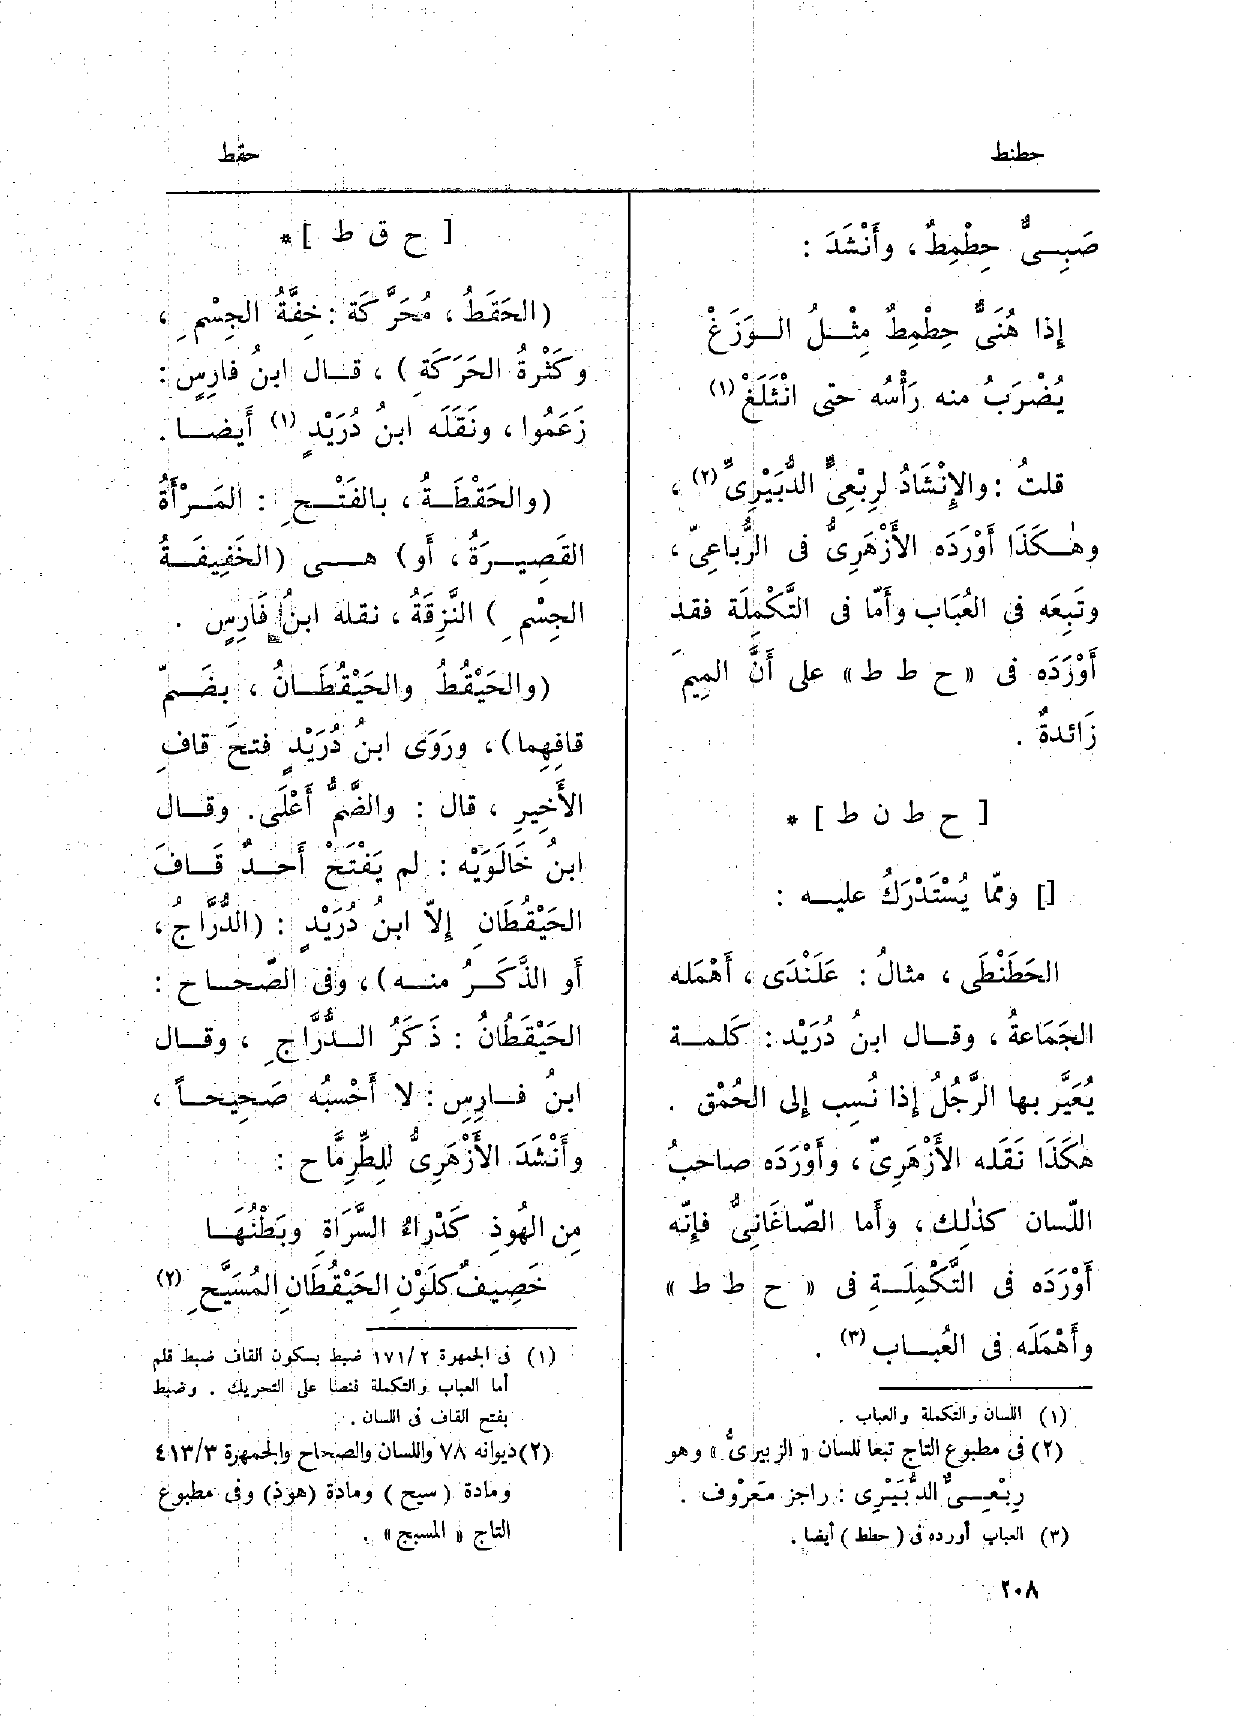 حطنط
حقط
صَبِـىٌّ حِطْمِطٌ ، وأَنْشَدَ :
إِذا هُنَىٌّ حِطْمِطٌ مِثْـلُ الـوَزَغْ
يُضْرَبُ منه رَأْسُه حتى انْثَلَغْ (١)
قلتُ : والإِنْشَادُ لرِبْعِىٍّ الدُّبَيْرِىِّ (٢) ،
وهـٰكَذَا أَوْرَدَه الأَزْهَرِىُّ فى الرُّباعِىّ ،
وتَبِعَه فى العُبَاب وأَمّا فى التَّكْمِلَة فقد
أَوْرَدَه فى « ح ط ط » على أَنَّ المِيمَ
زَائدةٌ .
[ ح ط ن ط ] *
[] وممّا يُسْتَدْرَكُ عليـه :
الحَطَنْطَى ، مثالُ : عَلَنْدَى ، أَهْمَله
الجَمَاعةُ ، وقـال ابنُ دُرَيْد : كَلمـة
يُعَيَّر بها الرَّجُلُ إِذا نُسِب إِلى الحُمْق .
هٰكَذَا نَقَله الأَزْهَرِىّ ، وأَوْرَدَه صاحبُ
اللّسان كذٰلِك ، وأَما الصّاغَانِىُّ فإِنّه
أَوْرَدَه فى التَّكْمِلَـةِ فى « ح ط ط »
وأَهْمَلَه فى العُبـاب (٣) .
(١) اللسان والتكملة والعباب .
(٢) فى مطبوع التاج تبعا للسان « الزبيرىُّ » وهو
رِبْعِـىٌّ الدُّبَيْرِى : راجز معروف .
(٣) العباب أورده فى ( حطط ) أيضا .
٢٠٨
[ ح ق ط ] *
(الحَقَطُ ، مُحَرَّكَة : خِفَّةُ الجِسْمِ ،
وكَثْرةُ الحَرَكَةِ ) ، قـال ابنُ فارِسٍ :
زَعَمُوا ، ونَقَلَه ابنُ دُرَيْدٍ (١) أَيضـا .
(والحَقْطَـةُ ، بالفَتْـحِ : المَـرْأَةُ
القَصِيـرَةُ ، أَو ) هـى (الخَفِيفَـةُ
الجِسْمِ ) النَّزِقَةُ ، نقله ابنُ فَارِسٍ .
(والحَيْقُطُ والحَيْقُطَـانُ ، بضَـمّ
قافِهِما) ، ورَوَى ابنُ دُرَيْدٍ فتحَ قافِ
الأَخِيرِ ، قال : والضَّمُّ أَعْلَى. وقـال
ابنُ خَالَوَيْه : لم يَفْتَحْ أَحـدٌ قَـافَ
الحَيْقُطَانِ إِلاّ ابنُ دُرَيْدٍ : (الدُّرَّاجُ ،
أَو الذَّكَـرُ منـه) ، وفى الصّحـاح :
الحَيْقُطَانُ : ذَكَرُ الـدُّرَّاجِ ، وقـال
ابنُ فـارِس : لا أَحْسَبُه صَحِيحـاً ،
وأَنْشَدَ الأَزْهَرِىُّ للطِّرِمّاح :
مِن الهُوذِ كَدْرَاءُ السَّرَاةِ وبَطْنُهَـا
خَصِيفٌ كلَوْنِ الحَيْقُطَانِ المُسَيَّحِ (٢)
(١) فى الجمهرة ١٧١/٢ ضبط بسكون القاف ضبط قلم
أما العباب والتكملة فنصا على التحريك . وضبط
بفتح القاف فى اللسان .
(٢) ديوانه ٧٨ واللسان والصحاح والجمهرة ٤١٣/٣
ومادة ( سيح ) ومادة (هوذ) وفى مطبوع
التاج « المسبح » .